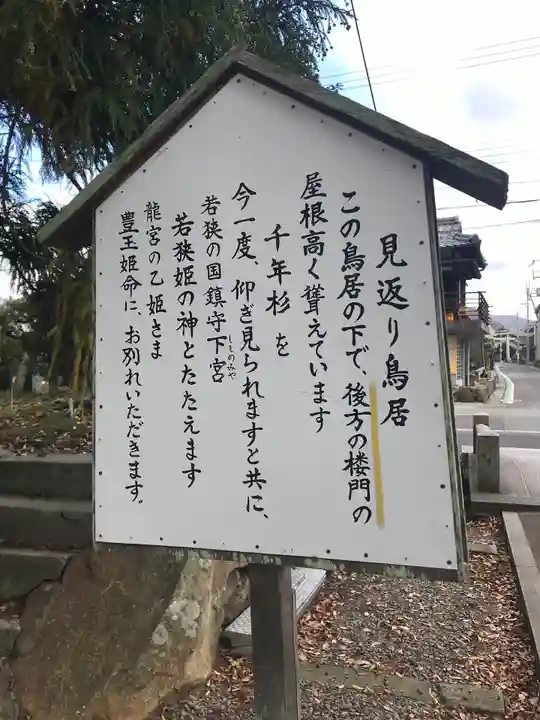 見返り鳥居
この鳥居の下で、後方の楼門の
屋根高く聳えています
千年杉を
今一度、仰ぎ見られますと共に、
若狭の国鎮守下宮
しものみや
若狭姫の神とたたえます
龍宮の乙姫さま
豊玉姫命に、お別れいただきます。